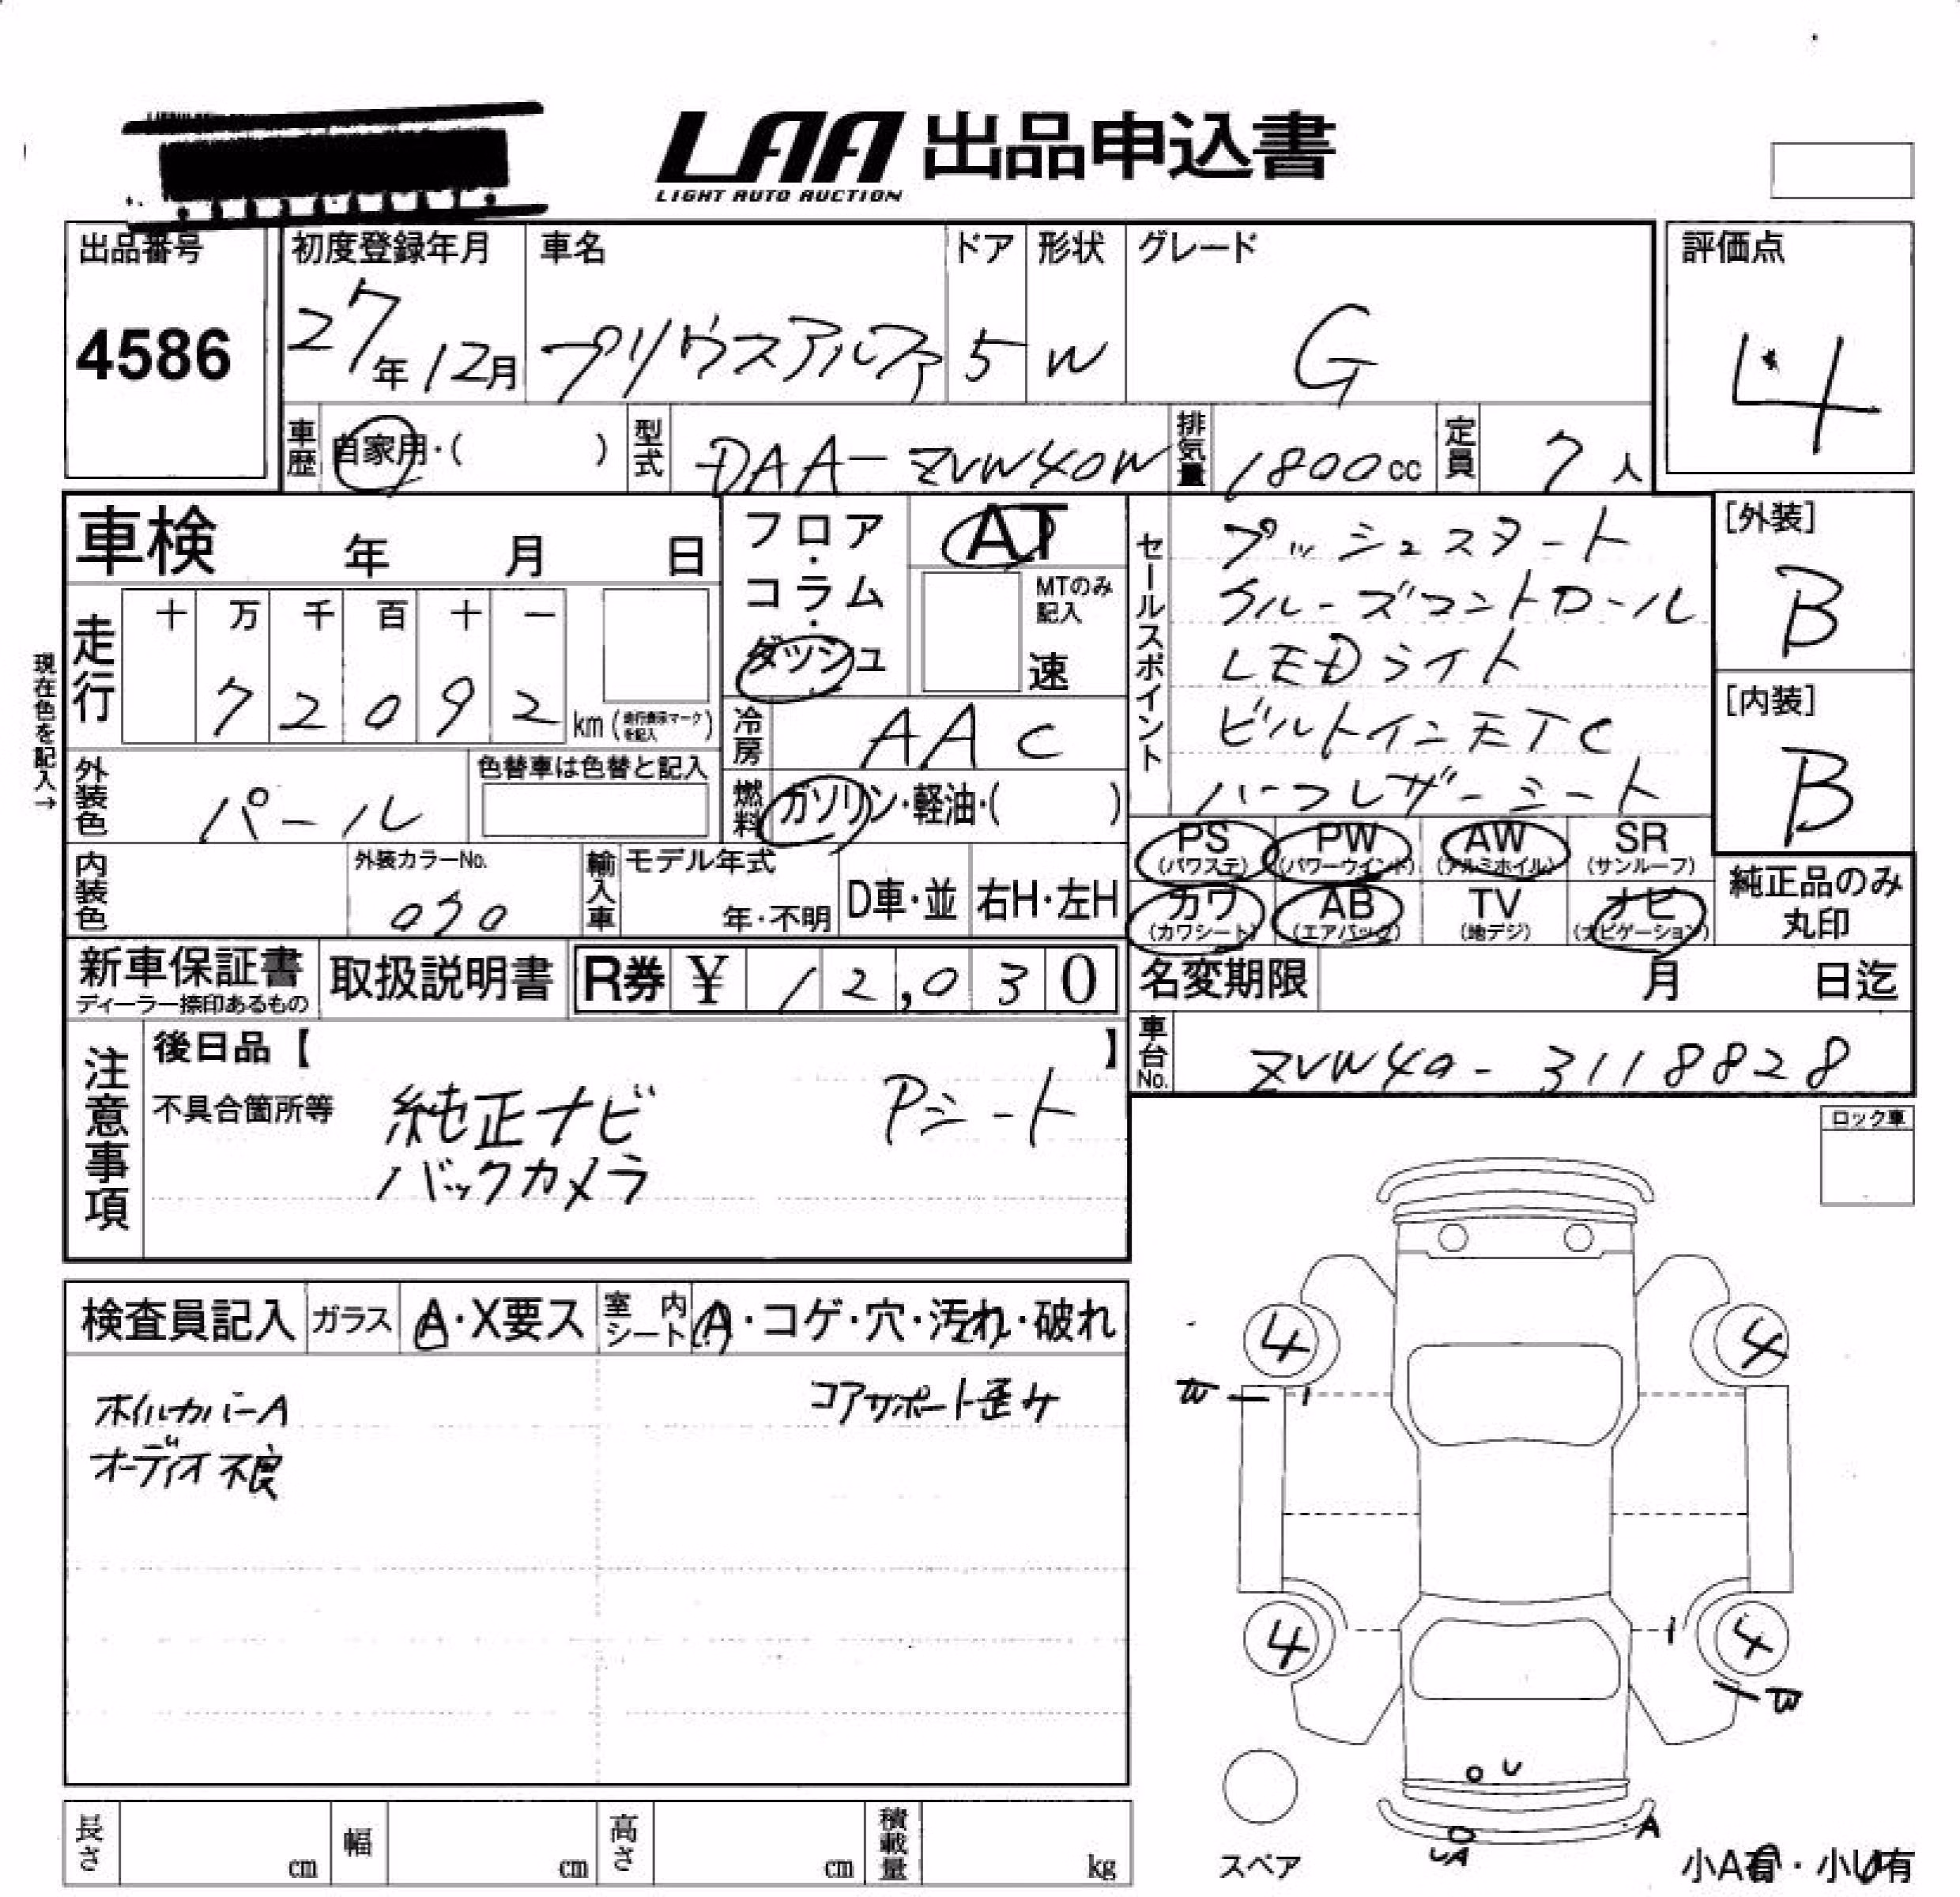 LAA 出品申込書
LIGHT AUTO AUCTION
出品番号
4586
初度登録年月
27年12月
車名
プリウスアルファ
ドア
5
形状
W
グレード
G
評価点
4
車歴
自家用・( )
型式
DAA-ZVW40W
排気量
1800cc
定員
7人
車検 年 月 日
フロア・コラム・ダッシュ
AT
MTのみ記入
速
セールスポイント
プッシュスタート
クルーズコントロール
LEDライト
ビルトインETC
ハーフレザーシート
[外装]
B
[内装]
B
現在色を記入→
走行
十 万 千 百 十 一
7 2 0 9 2
km (走行表示マークを記入)
冷房
AAC
外装色
パール
色替車は色替と記入
燃料
ガソリン・軽油・( )
PS (パワステ)
PW (パワーウインド)
AW (アルミホイル)
SR (サンルーフ)
カワ (カワシート)
AB (エアバック)
TV (地デジ)
ナビ (ナビゲーション)
純正品のみ丸印
内装色
外装カラーNo.
070
輸入車
モデル年式
年・不明
D車・並
右H・左H
新車保証書
ディーラー捺印あるもの
取扱説明書
R券 ¥ 12,030
名変期限 月 日迄
車台No.
ZVW40-3118828
注意事項
後日品【 】
不具合箇所等
純正ナビ Pシート
バックカメラ
ロック車
検査員記入
ガラス
A・X要ス
室内シート
A・コゲ・穴・汚れ・破れ
ホイルカバーA
コアサポート歪み
オーディオ不良
4
4
W
4
4
W
U
A
UA
スペア
長さ cm
幅 cm
高さ cm
積載量 kg
小A有・小U有